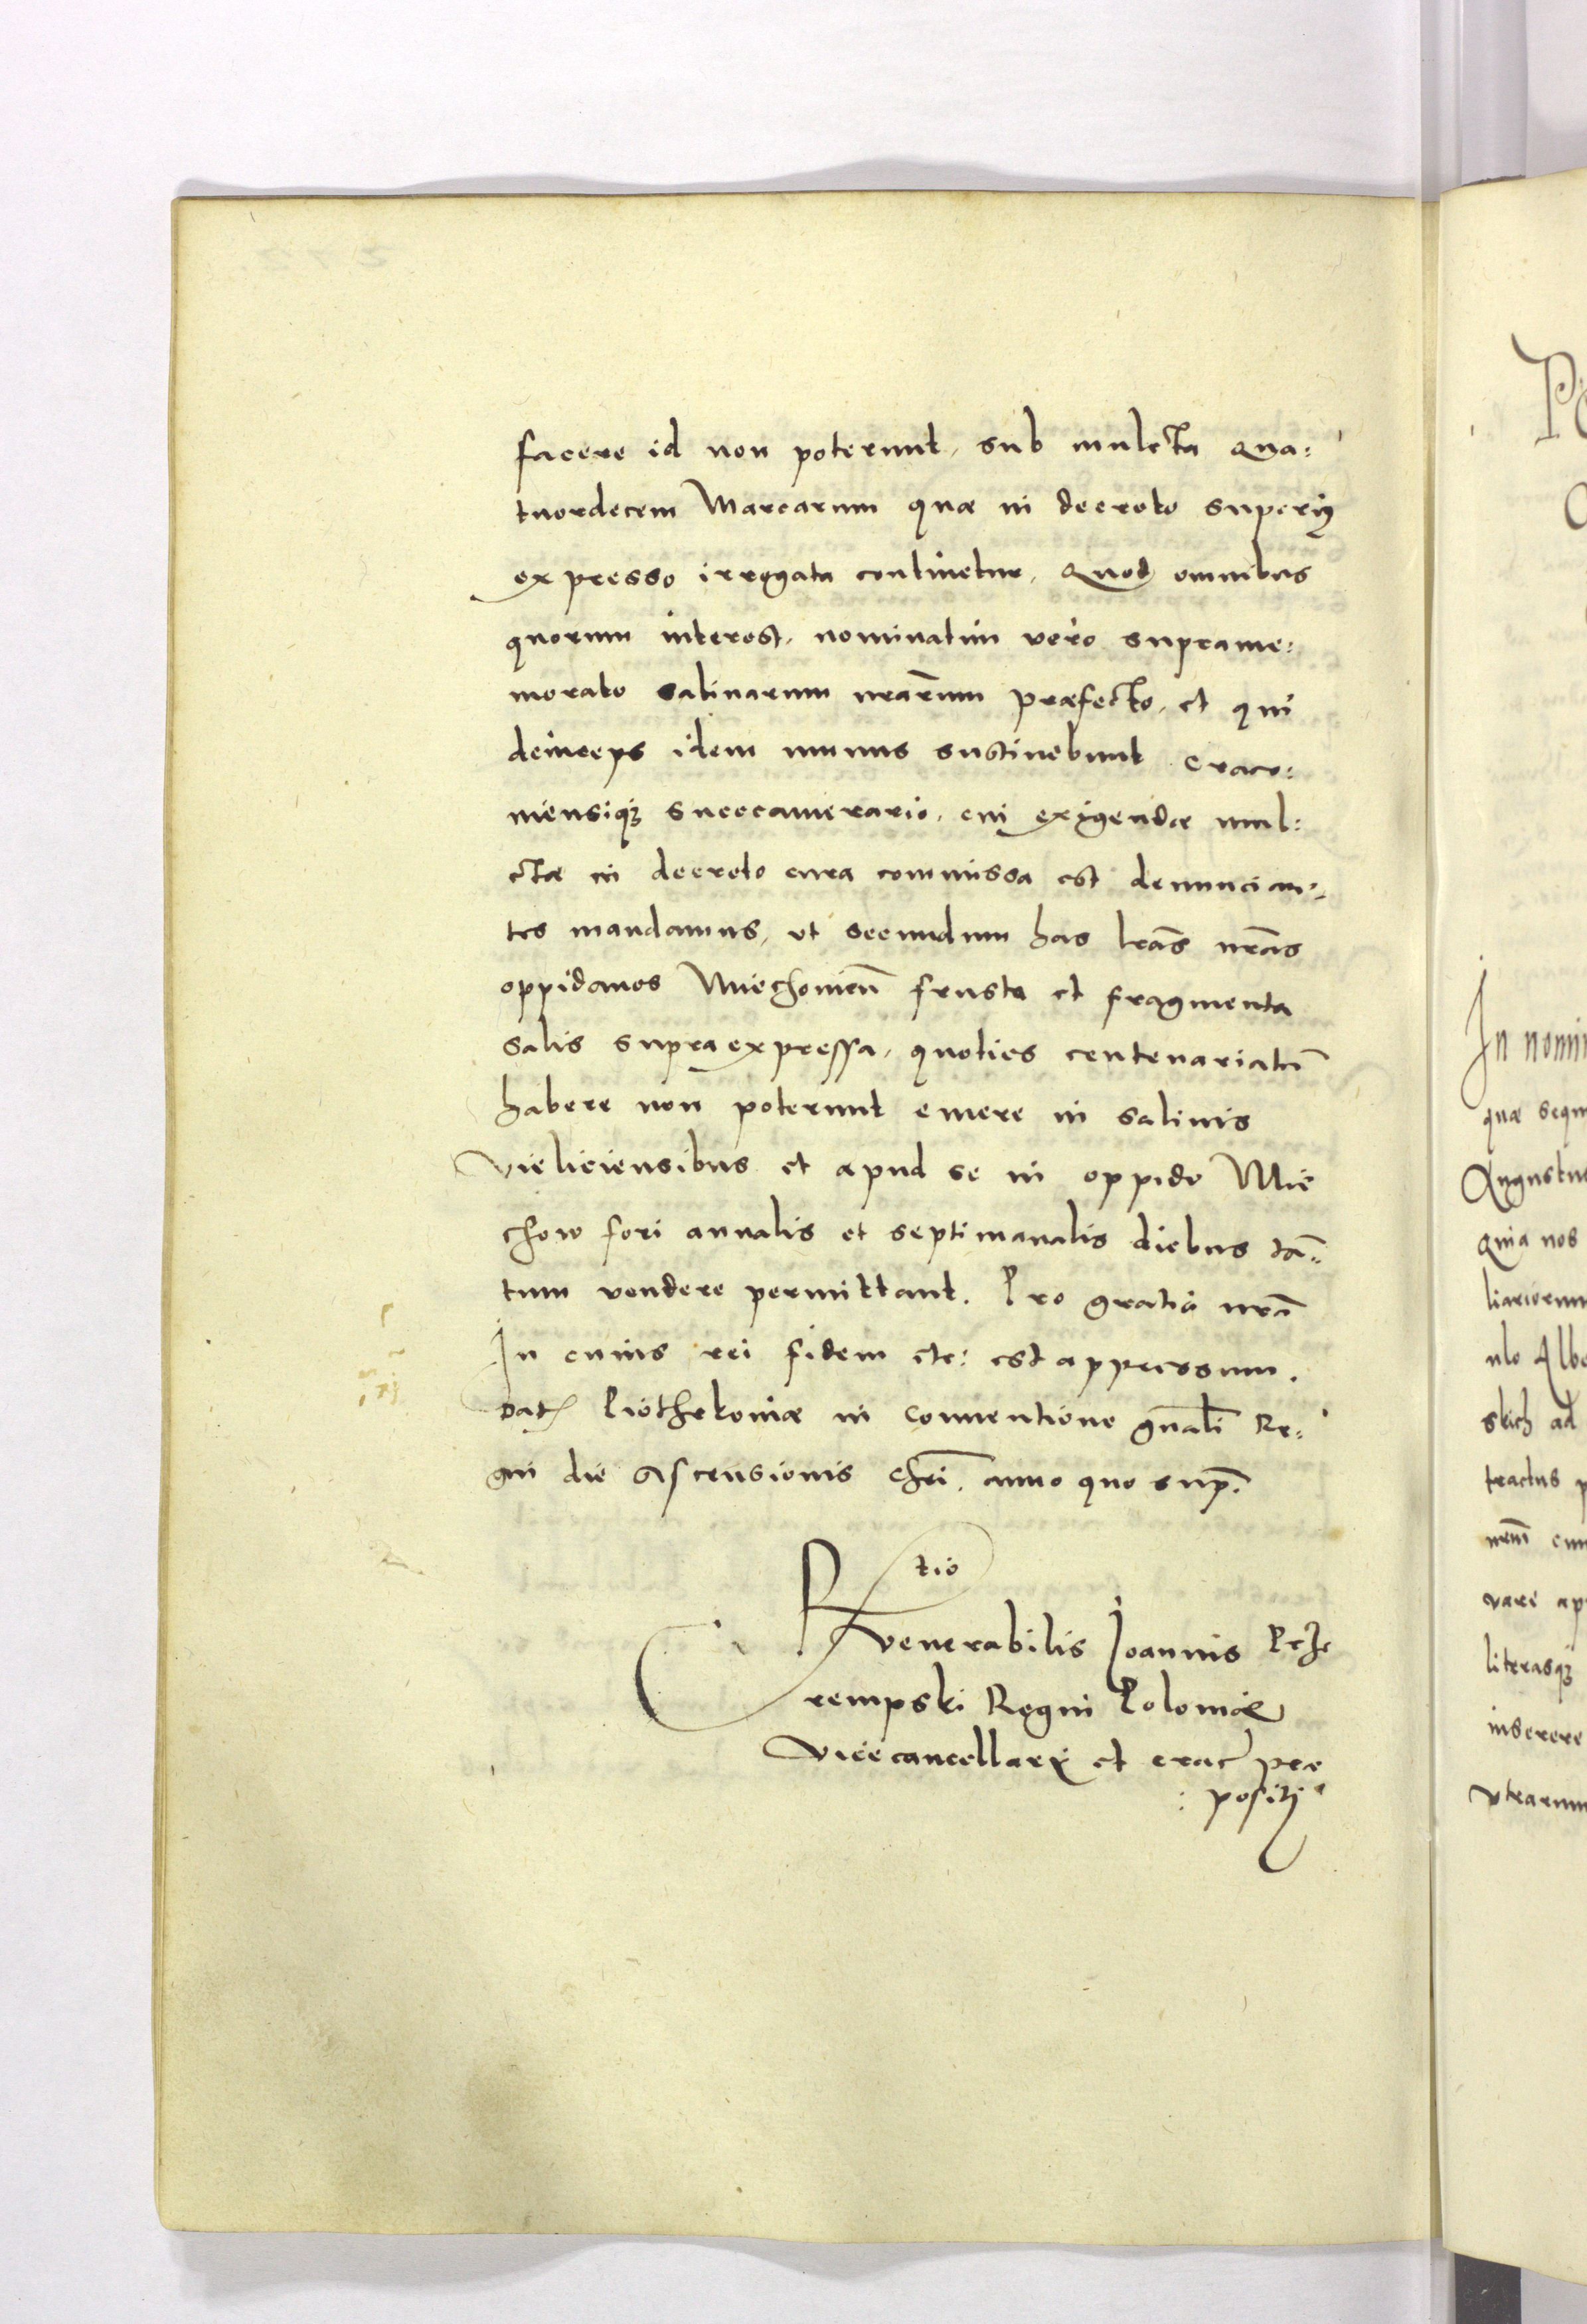 facere id non poterunt, sub mulcta qua:
tuordecem Marcarum quæ in decreto superiꝯ
expresso irrogata continetur, Quod omnibus
quorum interest, nominatim vero suprame:
morato salinarum nrarum præfecto, et qui
deinceps idem munus sustinebunt craco:
niensiqꝫ succamerario, cui exigendæ mul:
ctæ in decreto cura commissa est denuncian:
tes mandamus, ut secundum has lras nras
oppidanos Miechonien̄ frusta et fragmenta
salis supraexpressa, quoties centenariatū
habere non poterunt emere in salinis
Vieliciensibus et apud se in oppido Mie
chow fori annalis et septimanalis diebus tā:
tum vendere permittant. Pro gratia nrā
In cuius rei fidem etc: est appressum.
Dat Piothrkoviæ in conventione gnali Re:
gni die Ascensionis Chri. anno quo sup.
R tio
venerabilis Joannis Prze
rempski Regni Poloniæ
Vicecancellarij et crac præ
: positi
In nomi
quæ sequ
Augustu
quia nos
liariorum
ulo Albe
skich ad
tractus p
nrm cum
vari ap
literasqꝫ
inserere
utrarum